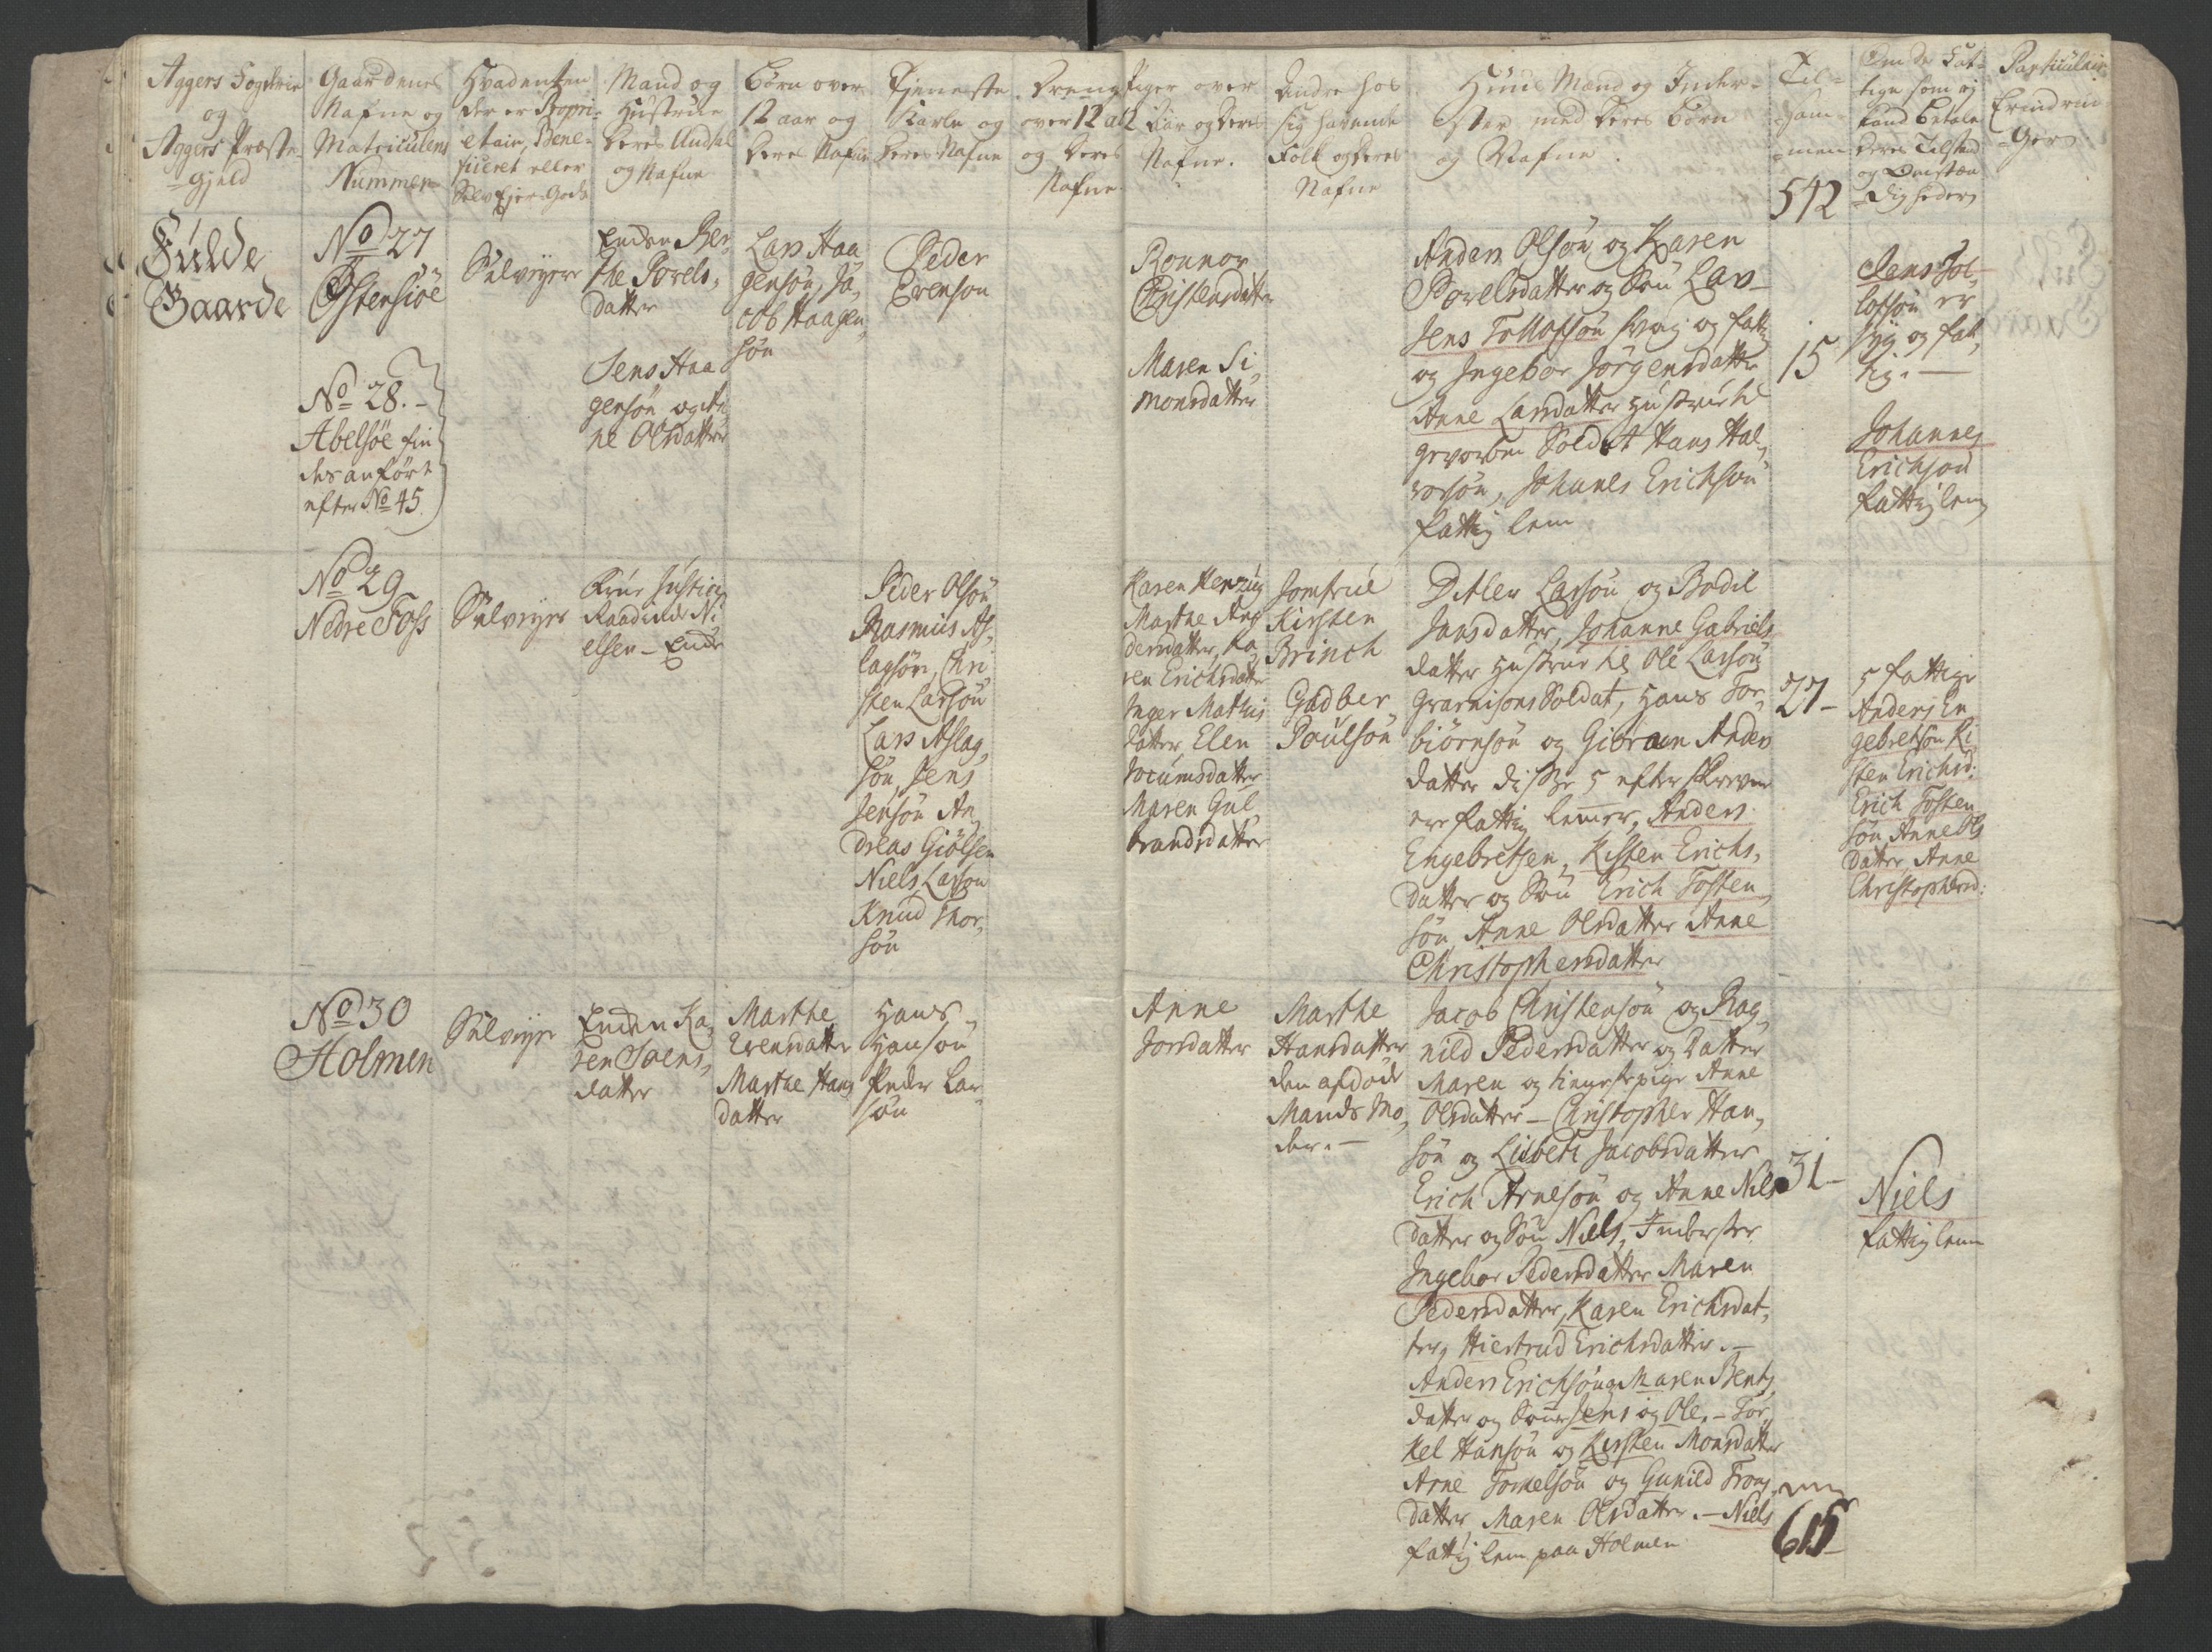 Aggers Fogderie
og
Aggers Præste-
gield
Gaardenes
Nafne og
Matriculens
Nummer
Hvad enten
der er Propri-
etair, Bene-
ficeret eller
Selv Ejer Gods
Mand og
Hustrue
Deres Antal
og Nafne
Børn over
12 aar og
Deres Nafne
Tjeneste
Karle og
Deres Nafne
Dreng
over 12 aar
og Deres
Nafne
Piger over
12 Aar og Deres
Nafne.
Andre hos
sig havende
Folk og Deres
Nafne
Huus Mænd og Inder-
ster med Deres Børn
og Nafne.
Til-
sam-
men
542
Om de Fat-
tige som ej
kand betale
Deres Tilstand
og Omstæn-
digheder
Particulair
Erindrin-
ger
Fulde
Gaarde
No 27
Østensiøe
Selvejer
Enken Ber-
the Povels-
datter
Jens Haa
gensøn og An
ne Olsdatter
Lars Haa
gensøn, Ja-
cob Haagen-
søn
Peder
Evenson
Ronnor
Christensdatter
Maren Si-
monsdatter
Anders Olsøn og Karen
Povelsdatter og Søn Lars
Jens Tollofsøn svag og fattig
og Ingebor Jørgensdatter
Anne Larsdatter Hustrue til
gevorben Soldat Hans Hal-
vorsøn, Johanes Erichsøn
fattig lem
15
Jens Tol-
lofsøn er
syg og fat-
tig.
Johannes
Erichsøn
fattig lem
No 28.
Abelsøe fin
des anført
efter No 45
No 29
Nedre Foss
Selvejer
Frue Justice
Raadinde Ni-
elsen - Enke
Peder Olsøn
Rasmus As-
lagsøn, Chri-
sten Larsøn
Lars Aslag-
søn, Jens
Jensøn An-
dreas Giølsen
Niels Larson
Knud Thor-
søn
Marthe An-
dersdatter, Ka-
ren Erichsdatter
Inger Mathis
datter, Elen
Jocumsdatter
Maren Gul-
brandsdatter
Jomfrue
Kirsten
Brinch
Gudber
Poulsøn
Ditlev Larsøn og Bodil
Jansdatter, Johanne Gabriels
datter Hustrue til Ole Larsøn
Guarnisons Soldat, Hans Tor-
biørnsøn og Anders
datter disse 5 efterskrevne
ere fattig lemmer, Anders
Engebretsen, Kisten Erichs-
datter og Søn Erich Tosten-
søn, Anne Olsdatter Anne
Christophersdatter
27
5 fattige
Anders En
gebretsøn Ki
sten Erichsd:
Erich Tosten
søn Anne Ols
datter, Anne
Christophersd:
No 30
Holmen
Selvejer
Enken Ka-
ren Svens-
datter
Marthe
Evensdatter
Marthe Hans
datter
Hans
Hansøn
Peder Lar-
søn
Anne
Jonsdatter
Marthe
Hansdatter
den afdøde
Mands Mo-
der.
Jacob Christensøn og Rag-
nild Pedersdatter og Datter
Maren og tienestepige Anne
Olsdatter - Christopher Han-
søn og Lisbeth Jacobsdatter
Erich Arnesøn og Anne Nils
datter og Søn Niels, Inderster
Ingebor Pedersdatter Maren
Pedersdatter, Karen Erichsdat-
ter, Hiestrud Erichsdatter.
Anders Erichsøn og Maren Bents
datter og Sønner Jens og Ole. - Tor
kel Hansøn og Kirsten Monsdatter
Arne Tomelsøn og Gunild Trons
datter, Maren Olsdatter. - Niels
fattig lem paa Holmen
31
Niels
fattig lem
615